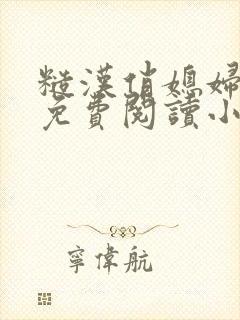 糙漢俏媳婦
免費閱讀小
寧偉航